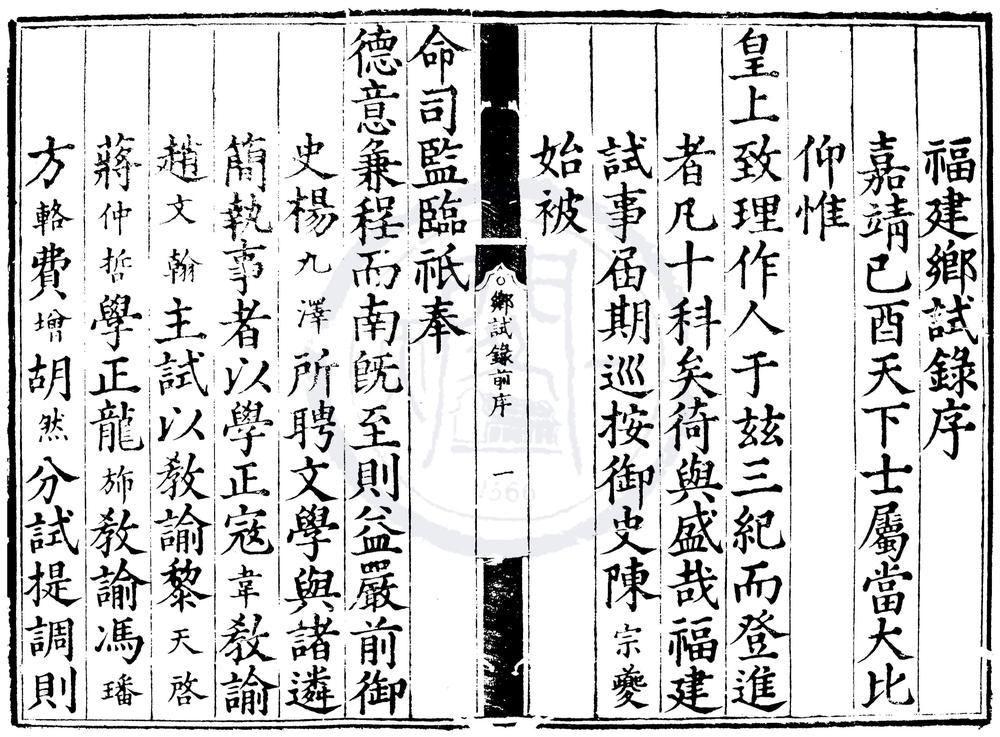 福建鄉試錄序
嘉靖己酉天下士屬當大比
仰惟
皇上致理作人于玆三紀而登進
者凡十科矣徛與盛哉福建
試事届期巡按御史陳宗夔
始被
鄉試錄前序 一
命司監臨祇奉
德意兼程而南旣至則益嚴前御
史楊九澤所聘文學與諸遴
簡執事者以學正寇韋教諭
趙文翰主試以教諭黎天啓
蔣仲哲學正龍斾教諭馮璠
方輅費增胡然分試提調則
1366